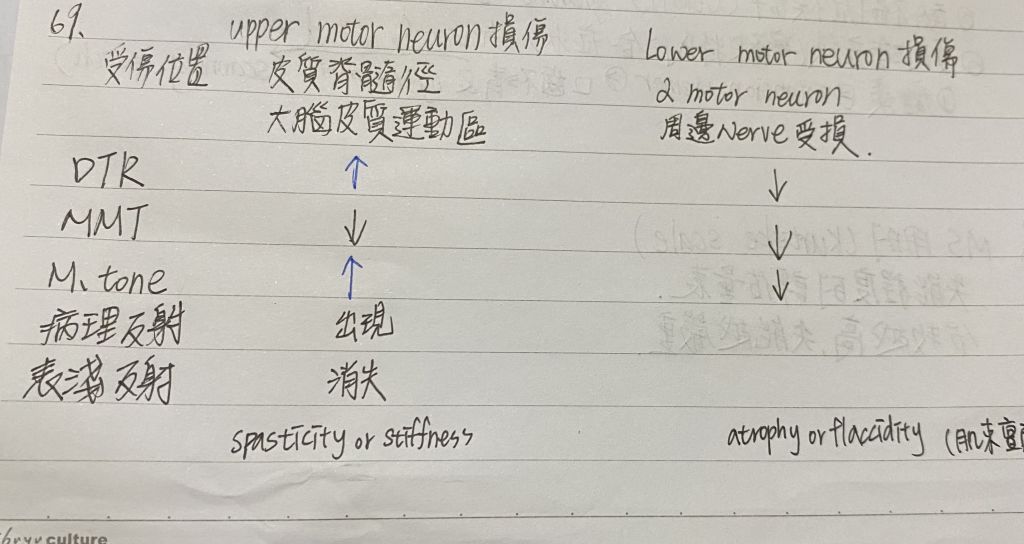 69.
upper motor neuron 損傷 Lower motor neuron 損傷
受傷位置 皮質脊髓徑 2 motor neuron
大腦皮質運動區 周邊Nerve受損.
DTR ↑ ↓
MMT ↓ ↓
M. tone ↑ ↓
病理反射 出現
表淺反射 消失
spasticity or stiffness atrophy or flaccidity (肌束
culture